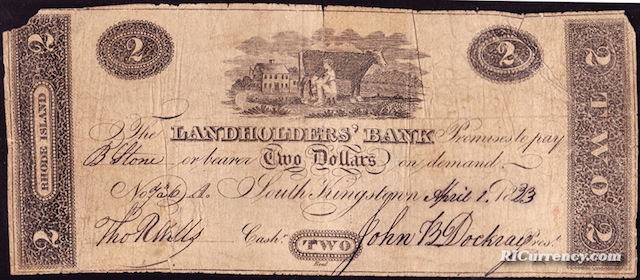 2
RHODE ISLAND
2
2
2
2
TWO
2
The LANDHOLDERS' BANK Promises to pay
B Stone or bearer Two Dollars on demand.
No A. South Kingstown April 1. 1823
Tho R Wells Cashr. TWO John B Dockray Prest.
RICurrency.com